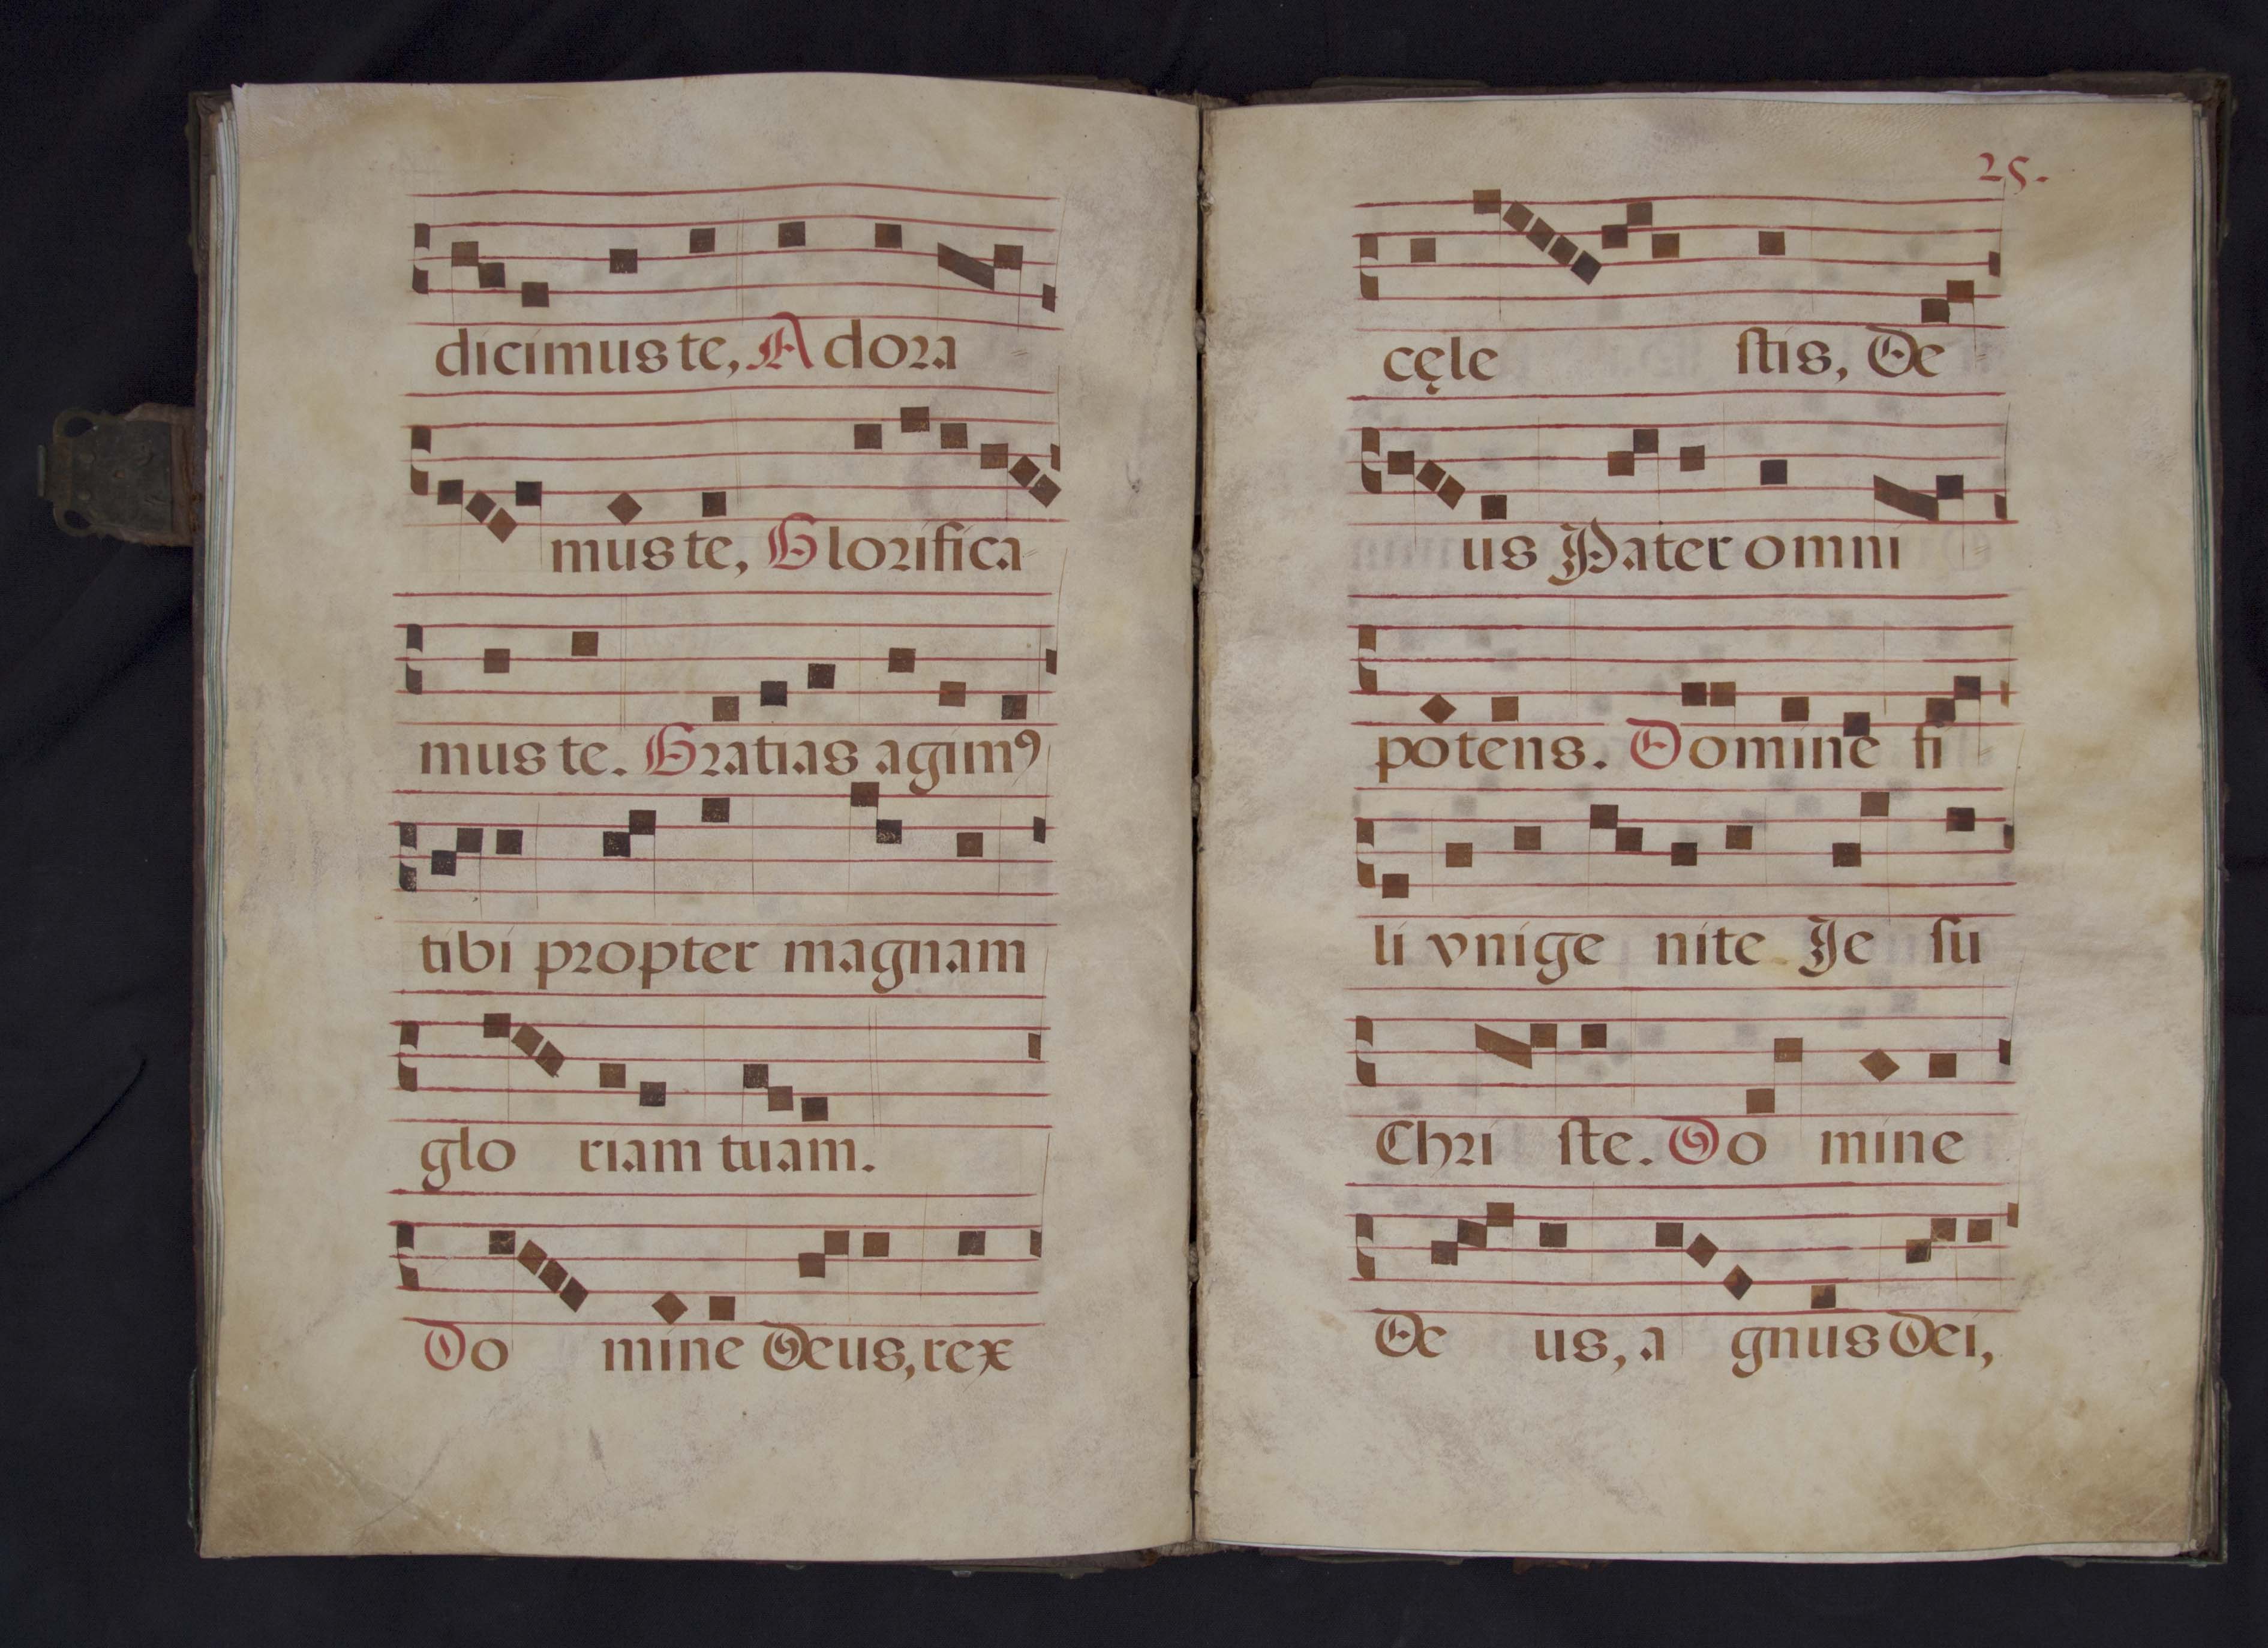 dicimus te, Adora
mus te, Glorifica
mus te. Gratias agimꝰ
tibi propter magnam
glo riam tuam.
Do mine Deus, rex
25.
cęle ſtis, De
us Pater omni
potens. Domine fi
li vnige nite Je ſu
Chri ſte. Do mine
De us, a gnus Dei,